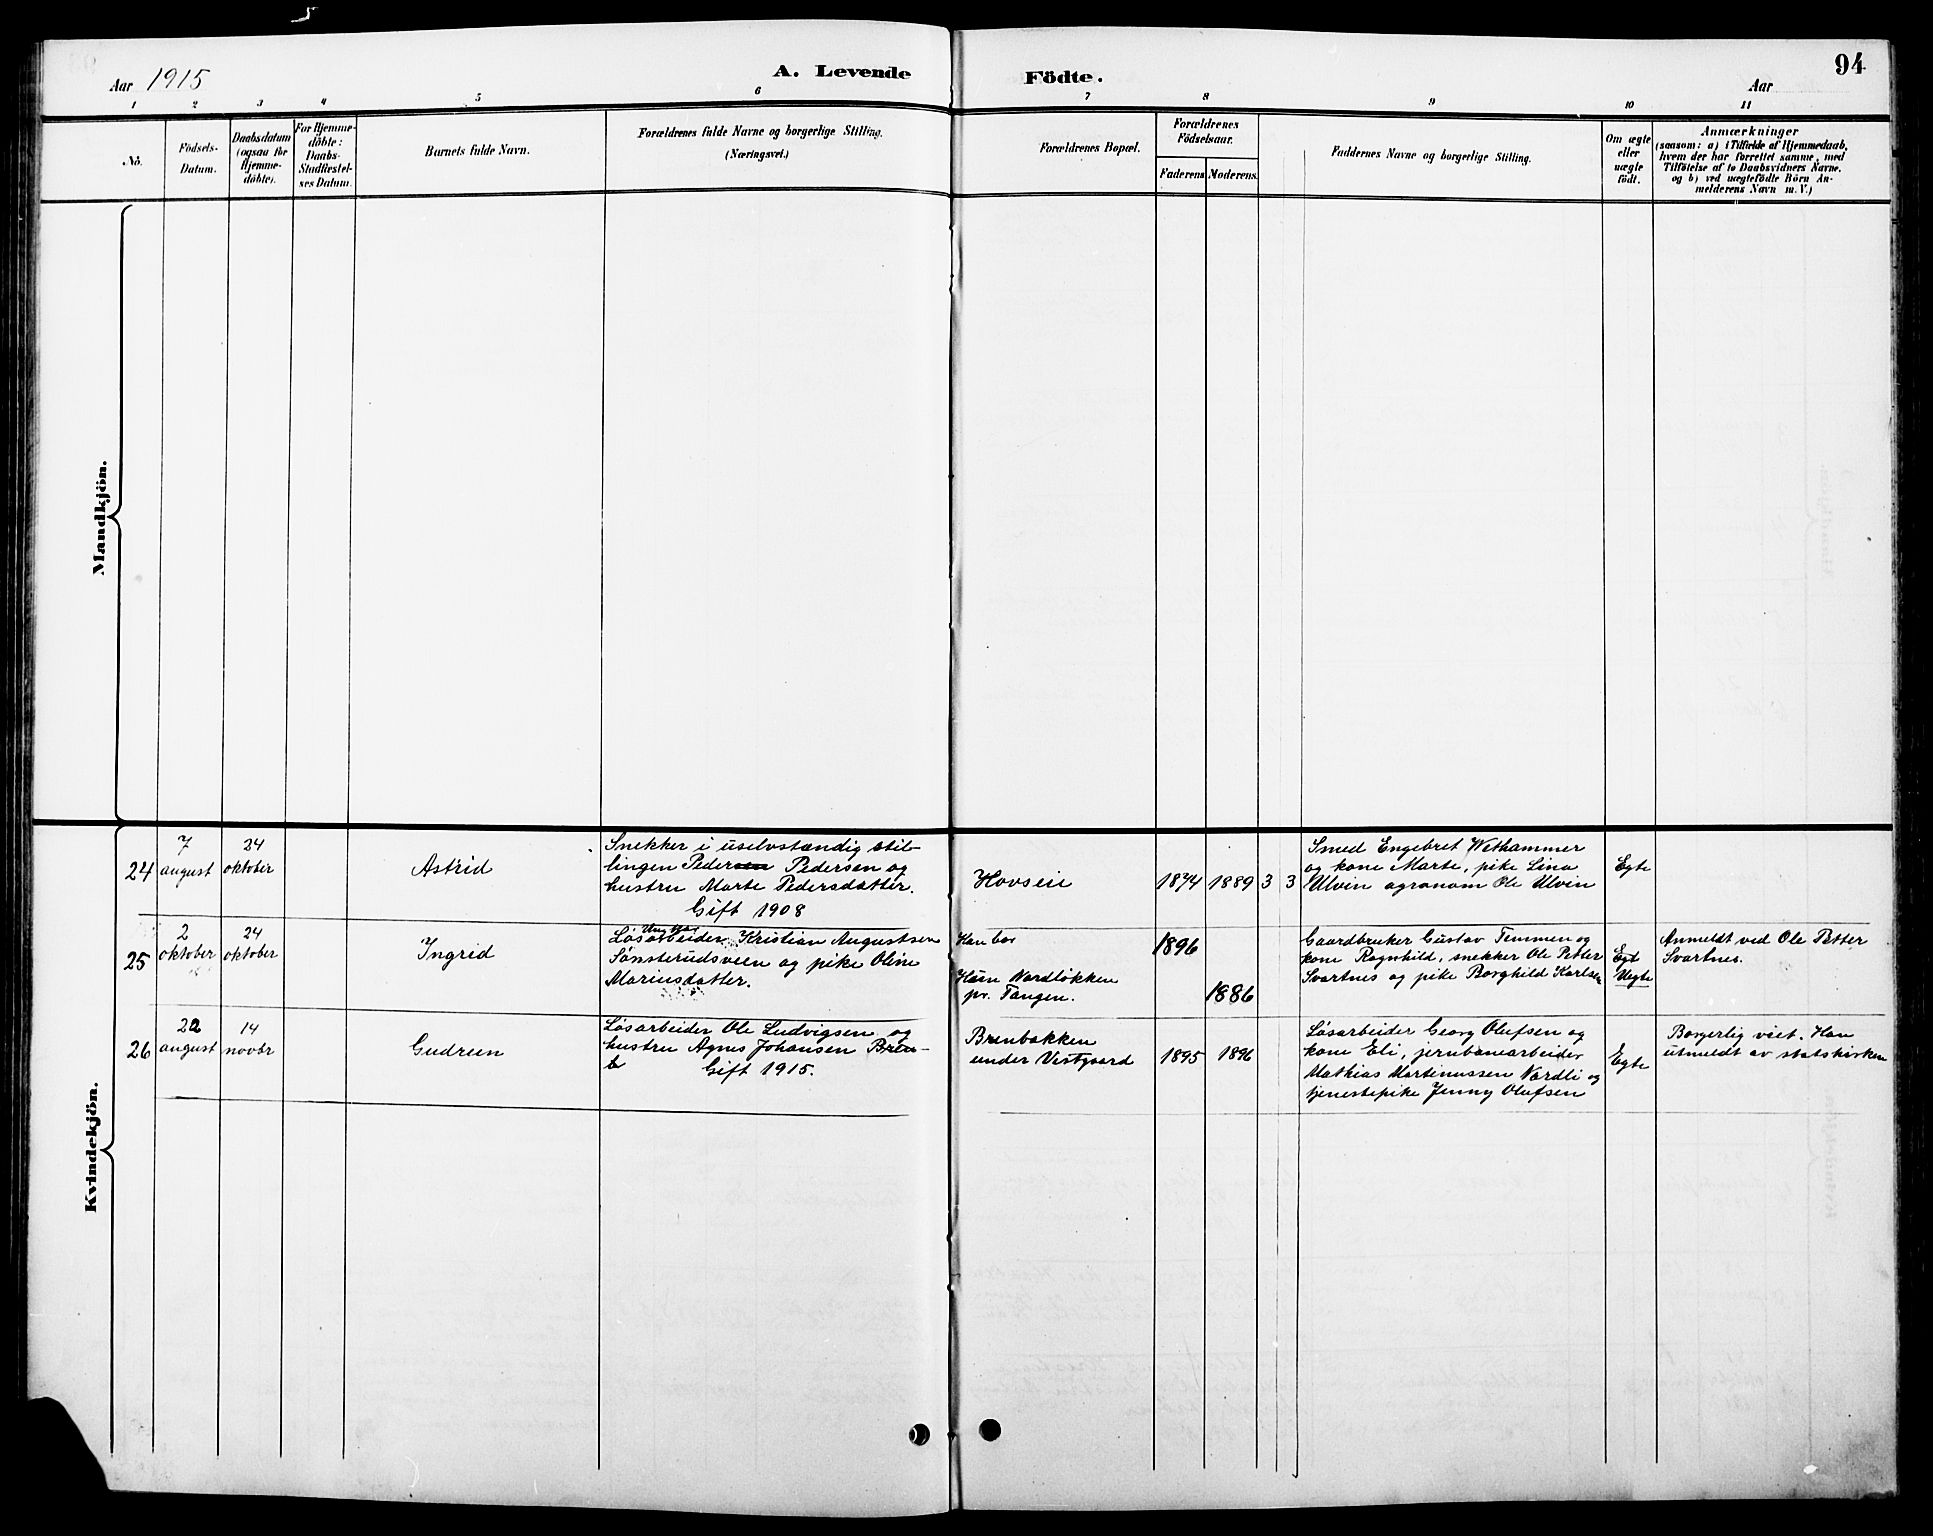 Aar 1915
A. Levende
Födte.
Aar
94
1 2 3 4 5 6 7 8 9 10 11
Nô.
Födsels-
Datum.
Daabsdatum
(ogsaa for
Hjemme-
döbte).
For Hjemme-
döbte:
Daabs-
Stadfæstel-
ses Datum.
Barnets fulde Navn.
Forældrenes fulde Navne og borgerlige Stilling.
(Næringsvei.)
Forældrenes Bopæl.
Forældrenes
Födselsaar.
Faderens Moderens.
Faddernes Navne og borgerlige Stilling.
Om ægte
eller
uægte
födt.
Anmærkninger
(saasom: a) i Tilfælde af Hjemmedaab,
hvem der har forrettet samme, med
Tilföielse af to Daabsvidners Navne.
og b) ved uægtefödte Börn An-
melderens Navn m. V.)
Mandkjön.
Kvindekjön.
24
7
august
24
oktober
Astrid
Snekker i uselvstændig stil-
lingen Pedersen Pedersen og
hustru Marte Pedersdatter.
Gift 1908
Hovseie
1874 1889 3 3
Smed Engebret Wethammer
og kone Marte, pike Lina
Ulvin agronom Ole Ulvin
Egte
25
2
oktober
24
oktober
Ingrid
Løsarbeider Kristian Augustsen
Sønsterudsveen og pike Oline
Mariusdatter.
Han bor
Hun Nordløkken
pr. Tangen.
1896
1886
Gaardbruker Gustav Temmen og
kone Ragnhild, snekker Ole Petter
Svartnes og pike Borghild Karlsen
Egt
Uegte
Anmeldt ved Ole Petter
Svartnes.
26
22
august
14
novbr
Gudrun
Løsarbeider Ole Ludvigsen og
hustru Agnes Johansen
Gift 1915.
Brenbakken
under Vestgaard
1895 1896
Løsarbeider Georg Olufsen og
kone Eli, jernbanearbeider
Mathias Martinussen Nordli og
tjenestepike Jenny Olufsen
Egte
Borgerlig viet. Han
utmeldt av statskirken